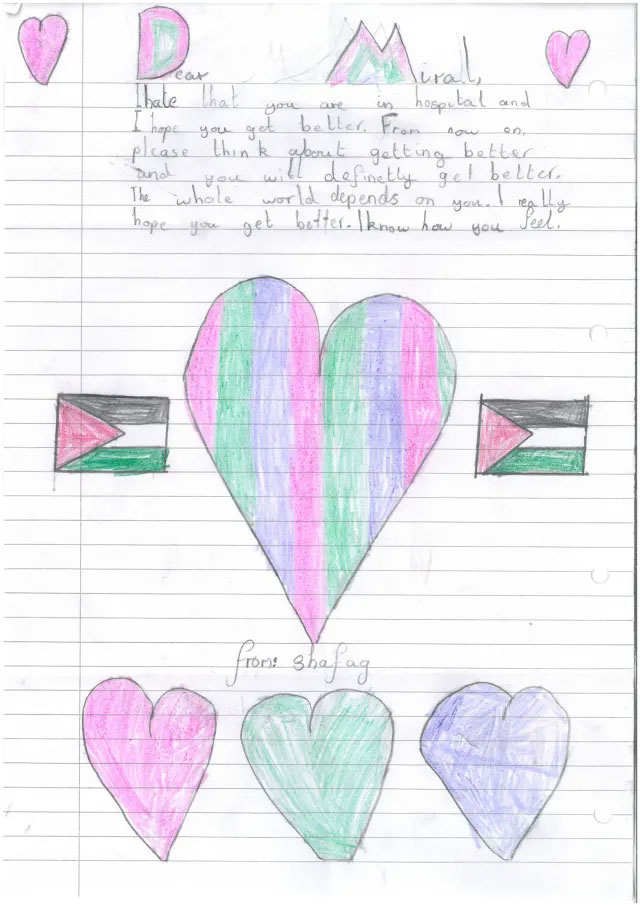 Dear Miral,
I hate that you are in hospital and
I hope you get better. From now on,
please think about getting better
and you will definetly get better.
The whole world depends on you. I really
hope you get better. I know how you feel.
from: Shafag